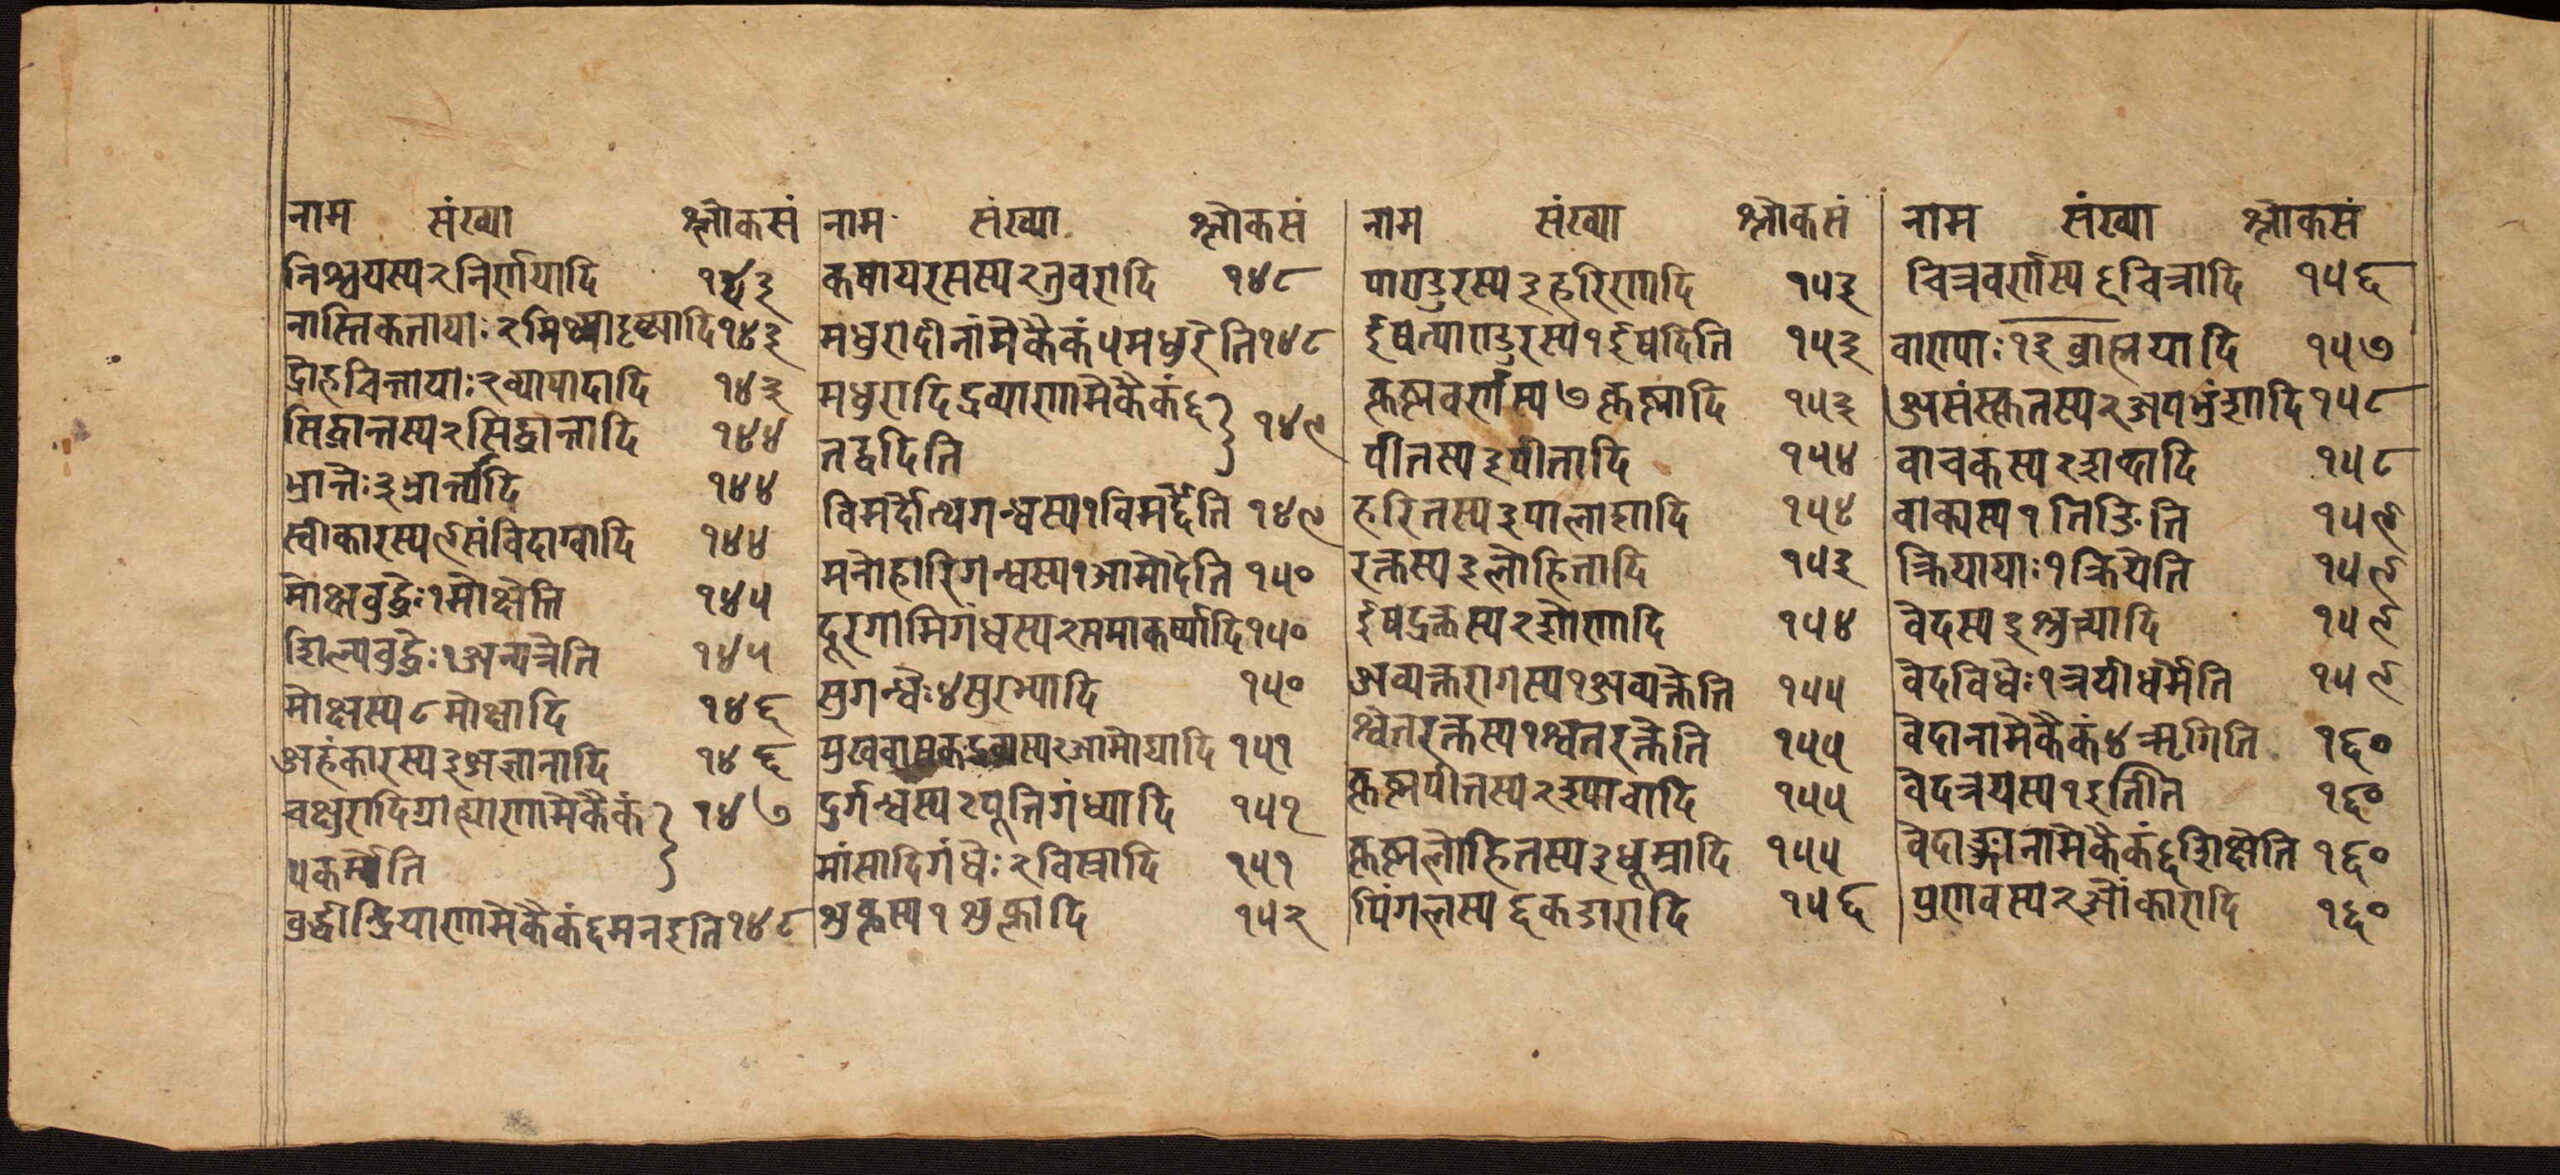 नाम संख्या श्लोकसं
निश्चयस्य२निर्णयादि १४३
नास्तिकतायाः२मिथ्यादृष्ट्यादि१४३
द्रोहचिन्तायाः२व्यापादादि १४३
सिद्धान्तस्य२सिद्धान्तादि १४४
भ्रान्तेः३भ्रान्त्यादि १४४
स्वीकारस्य९संविदाग्वादि १४४
मोक्षबुद्धेः१मोक्षेति १४५
शिल्पबुद्धेः१अन्यत्रेति १४५
मोक्षस्य८मोक्षादि १४६
अहंकारस्य३अज्ञानादि १४६
चक्षुरादिग्राह्याणामेकैकं १४७
५कर्मेति
बुद्धीन्द्रियाणामेकैकं६मनइति१४८
नाम संख्या श्लोकसं
कषायरसस्य२तुवरादि १४८
मधुरादीनामेकैकं५मधुरेति१४८
मधुरादिद्रव्याणामेकैकं६ १४९
तद्वदिति
विमर्दोत्थगन्धस्य१विमर्द्देति १४९
मनोहारिगन्धस्य१आमोदेति १५०
दूरगामिगंधस्य२समाकर्ष्यादि१५०
सुगन्धेः४सुरभ्यादि १५०
मुखवासकद्रव्यस्य२आमोद्यादि १५१
दुर्गन्धस्य२पूतिगंध्यादि १५१
मांसादिगंधेः२विस्रादि १५१
शुक्लस्य१शुक्लादि १५२
नाम संख्या श्लोकसं
पाण्डुरस्य३हरिणादि १५३
ईषत्पाण्डुरस्य१ईषदिति १५३
कृष्णवर्णस्य७कृष्णादि १५३
पीतस्य३पीतादि १५४
हरितस्य३पालाशादि १५४
रक्तस्य३लोहितादि १५३
ईषद्रक्तस्य२शोणादि १५४
अव्यक्तरागस्य१अव्यक्तेति १५५
श्वेतरक्तस्य१श्वेतरक्तेति १५५
कृष्णपीतस्य२श्यावादि १५५
कृष्णलोहितस्य३धूम्रादि १५५
पिंगलस्य६कडारादि १५६
नाम संख्या श्लोकसं
चित्रवर्णस्य६चित्रादि १५६
वाण्याः१३ब्राह्मयादि १५७
असंस्कृतस्य२अपभ्रंशादि१५८
वाचकस्य२शब्दादि १५८
वाक्यस्य१तिङिति १५९
क्रियायाः१क्रियेति १५९
वेदस्य३श्रुत्यादि १५९
वेदविधेः१त्रयीधर्मेति १५९
वेदानामेकैकं४ऋगिति १६०
वेदत्रयस्य१इतीति १६०
वेदाङ्गानामेकैकं६शिक्षेति १६०
प्रणवस्य२ओंकारादि १६०